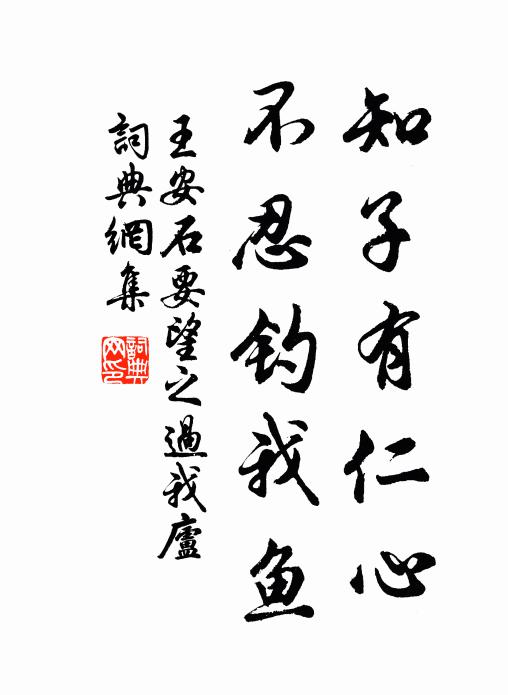 知子有仁心
不忍钓我鱼
王安石要望之過我廬
詞典網集
詞典
网印